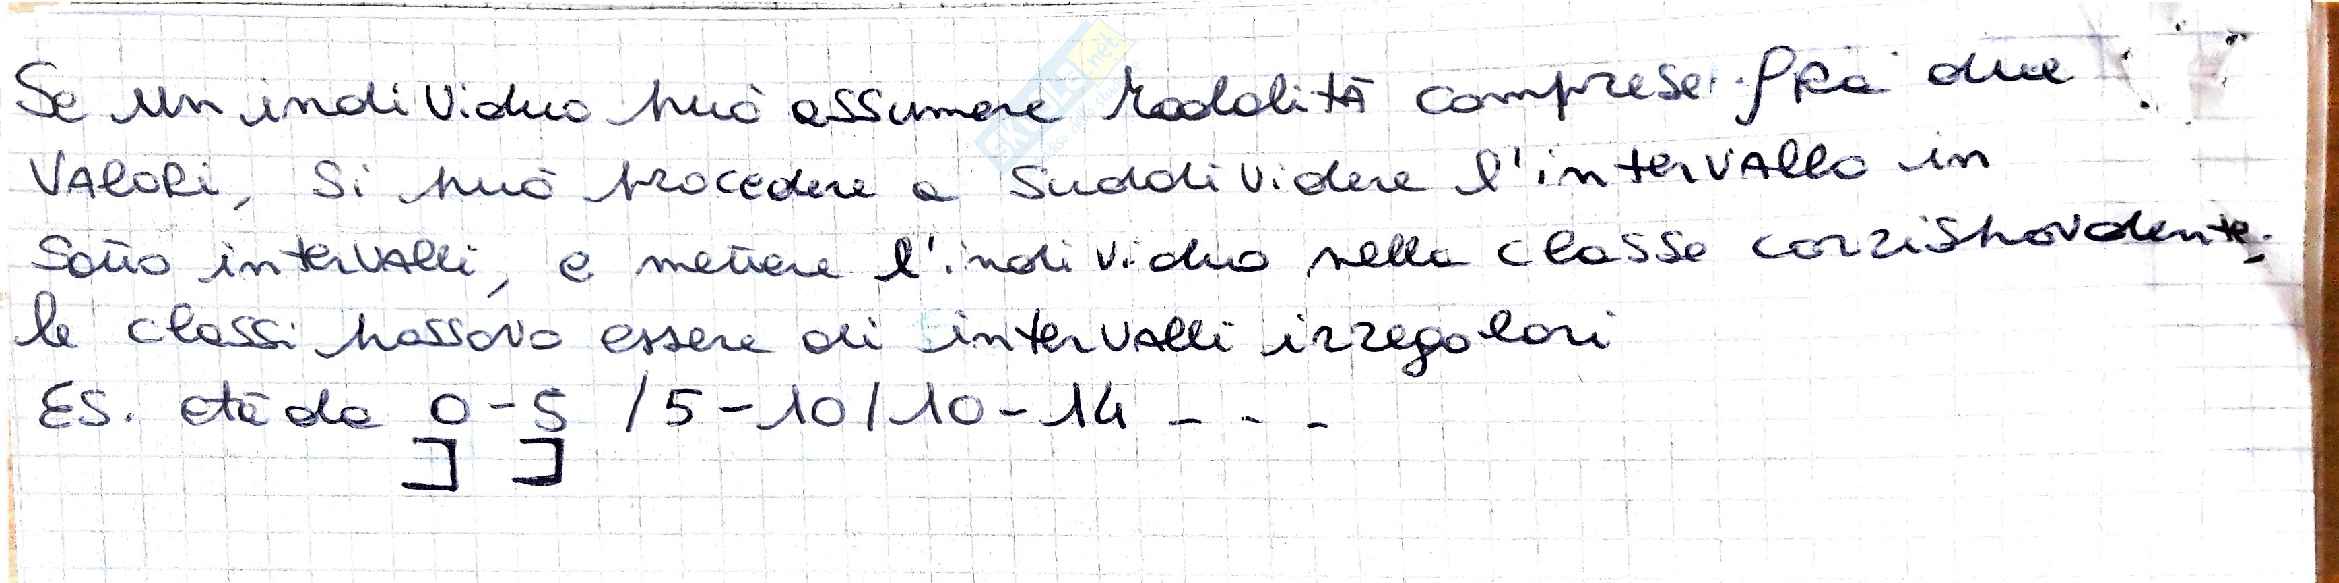 Se un individuo può assumere modalità comprese fra due
VALORi, Si può procedere a Suddividere l'intervallo in
Sotto intervalli, e mettere l'individuo nella classe corrispondente.
le classi possono essere di intervalli irregolari
ES. età da 0-5 / 5-10/10-14 - - -
] ]